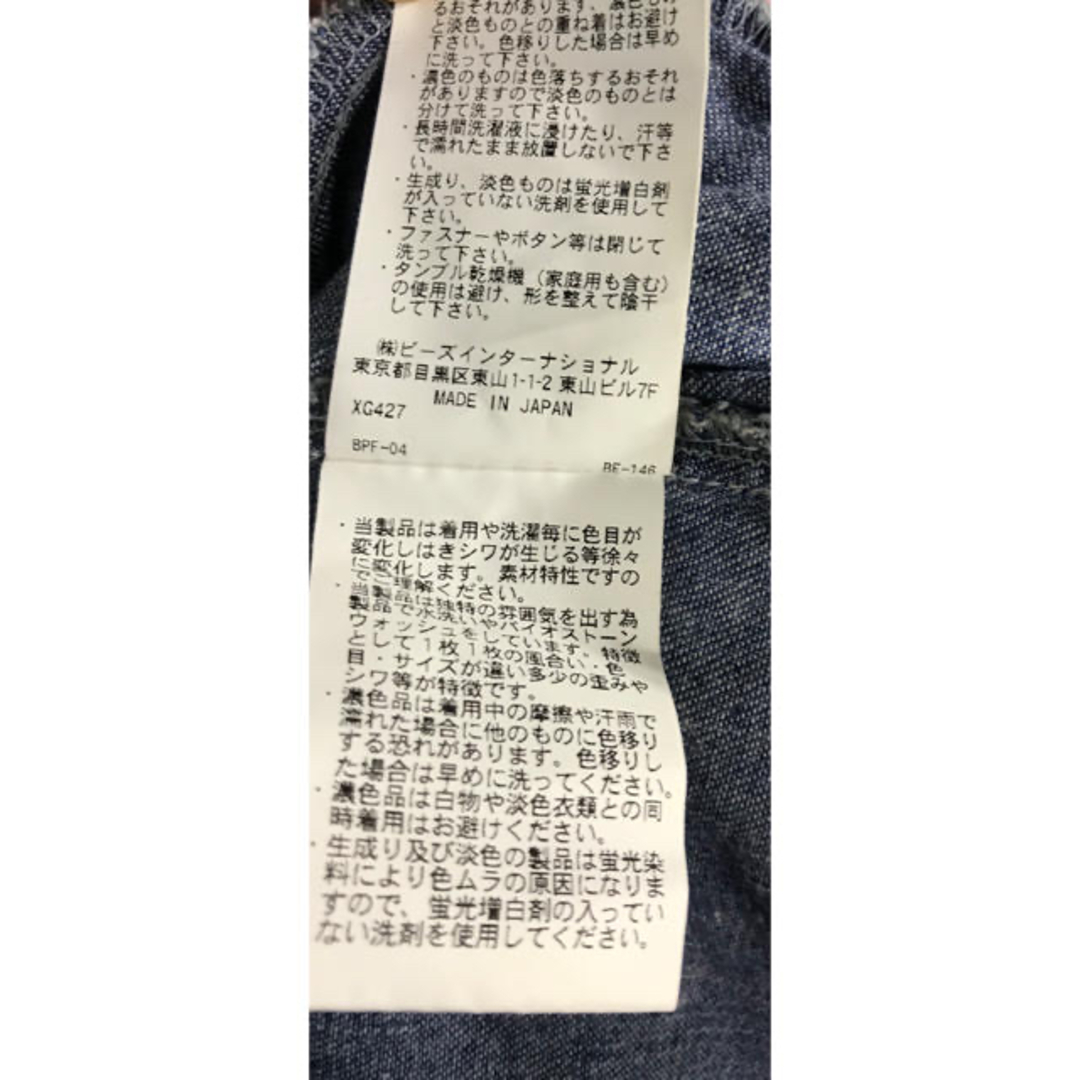 るおそれがあります、濃色もの
と淡色ものとの重ね着はお避け
下さい。色移りした場合は早め
に洗って下さい。
・濃色のものは色落ちするおそれ
がありますので淡色のものとは
分けて洗って下さい。
・長時間洗濯液に浸けたり、汗等
で濡れたまま放置しないで下さ
い。
・生成り、淡色ものは蛍光増白剤
が入っていない洗剤を使用して
下さい。
・ファスナーやボタン等は閉じて
洗って下さい。
・タンブル乾燥機（家庭用も含む）
の使用は避け、形を整えて陰干
して下さい。
㈱ビーズインターナショナル
東京都目黒区東山1-1-2 東山ビル7F
MADE IN JAPAN
XG427
BPF-04
BE-146
・当製品は着用や洗濯毎に色目が
変化しはきシワが生じる等徐々
に変化します。素材特性ですの
でご理解ください。
・当製品は独特の雰囲気を出す為
製品で水洗いやバイオストーン
ウォッシュをしています。特徴
として1枚1枚の風合い・色
目・サイズが違い多少の歪みや
シワ等が特徴です。
・濃色品は着用中の摩擦や汗雨で
濡れた場合に他のものに色移り
する恐れがあります。色移りし
た場合は早めに洗ってください。
・濃色品は白物や淡色衣類との同
時着用はお避けください。
・生成り及び淡色の製品は蛍光染
料により色ムラの原因になりま
すので、蛍光増白剤の入ってい
ない洗剤を使用してください。